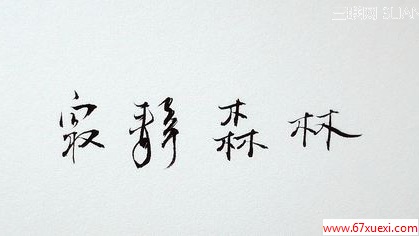 寂静森林
www.67xuexi.com